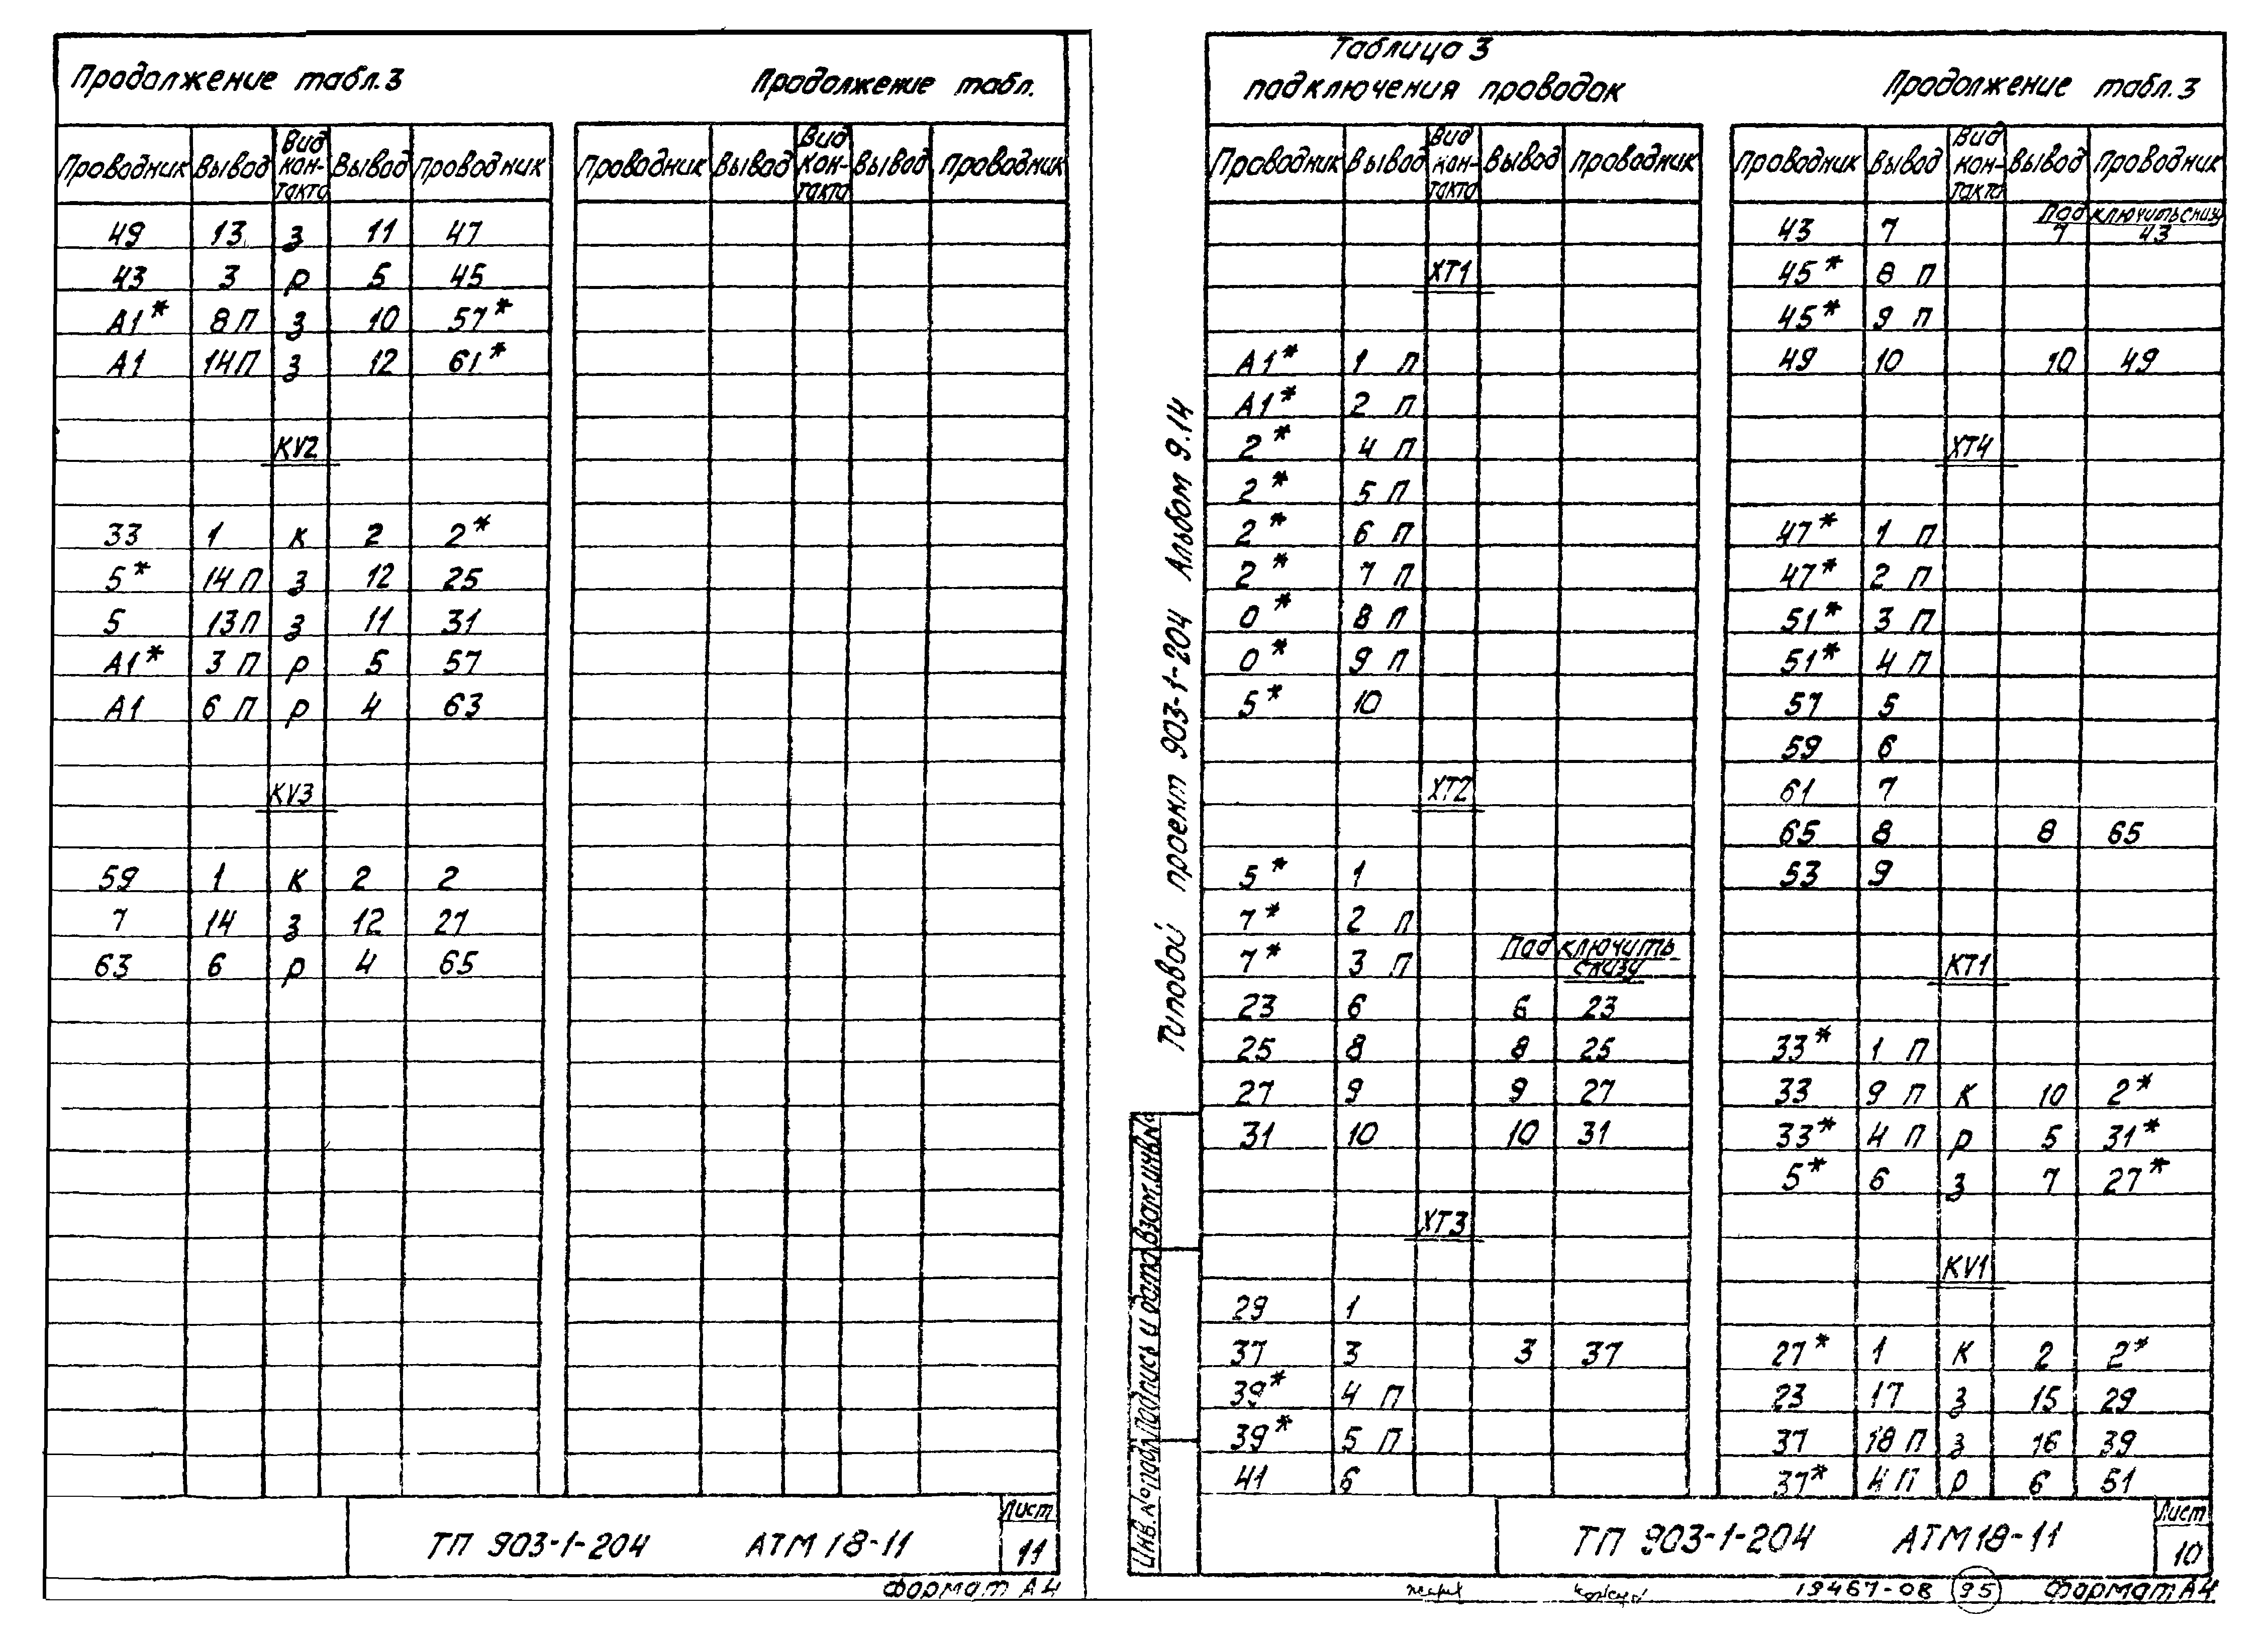 Продолжение табл.3
Проводник Вывод Вид контакта Вывод Проводник
49 13 з 11 47
43 3 р 5 45
А1* 8 П з 10 57*
А1 14 П з 12 61*
KV2
33 1 к 2 2*
5* 14 П з 12 25
5 13 П з 11 31
А1* 3 П р 5 57
А1 6 П р 4 63
KV3
59 1 к 2 2
7 14 з 12 27
63 6 р 4 65
Продолжение табл.
Проводник Вывод Вид контакта Вывод Проводник
ТП 903-1-204 АТМ 18-11
Лист
11
Формат А4
Типовой проект 903-1-204 Альбом 9.14
Таблица 3
подключения проводок
Проводник Вывод Вид контакта Вывод Проводник
XT1
А1* 1 П
А1* 2 П
2* 4 П
2* 5 П
2* 6 П
2* 7 П
0* 8 П
0* 9 П
5* 10
XT2
5* 1
7* 2 П
Подключить
7* 3 П
снизу
23 6 6 23
25 8 8 25
27 9 9 27
31 10 10 31
XT3
29 1
37 3 3 37
39* 4 П
39* 5 П
41 6
Продолжение табл.3
Проводник Вывод Вид контакта Вывод Проводник
Подключить снизу
43 7 7 43
45* 8 П
45* 9 П
49 10 10 49
XT4
47* 1 П
47* 2 П
51* 3 П
51* 4 П
57 5
59 6
61 7
65 8 8 65
53 9
KT1
33* 1 П
33 9 П к 10 2*
33* 4 П р 5 31*
5* 6 з 7 27*
KV1
27* 1 к 2 2*
23 17 з 15 29
37 18 П з 16 39
37* 4 П р 6 51
Инв.№подл. Подпись и дата Взам.инв.№
ТП 903-1-204 АТМ18-11
Лист
10
19467-08 95 Формат А4